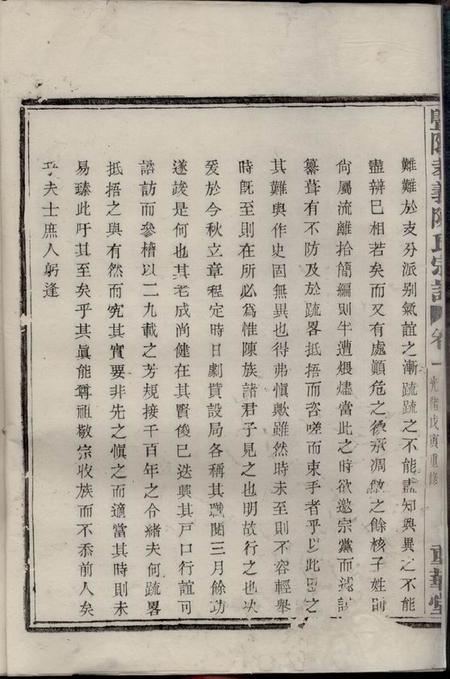 暨陽孝義陳氏宗譜 卷一 光緒戊寅重修 重華堂
難難於支分派别氣誼之漸疏疏之不能盡知與異之不能
盡辨已相若矣而又有處顚危之後承凋敝之餘核子姓則
尚屬流離拾簡編則半遭煨燼當此之時欲邀宗黨而議
纂葺有不防及於疏畧抵捂而咨嗟而束手者乎以此思之
其難與作史固無異也得弗慎歟雖然時未至則不容輕舉
時旣至則在所必爲惟陳族諸君子見之也明故行之也決
爰於今秋立章程定時日劇貲設局各稱其職閱三月餘功
遂竣是何也其老成尚健在其賢俊已迭興其戸口行誼可
諮訪而參稽以二九載之芳規接千百年之令緒夫何疏畧
抵捂之與有然而究其實要非先之慎之而適當其時則未
易臻此吁其至矣乎其眞能尊祖敬宗收族而不忝前人矣
乎夫士庶人躬逢